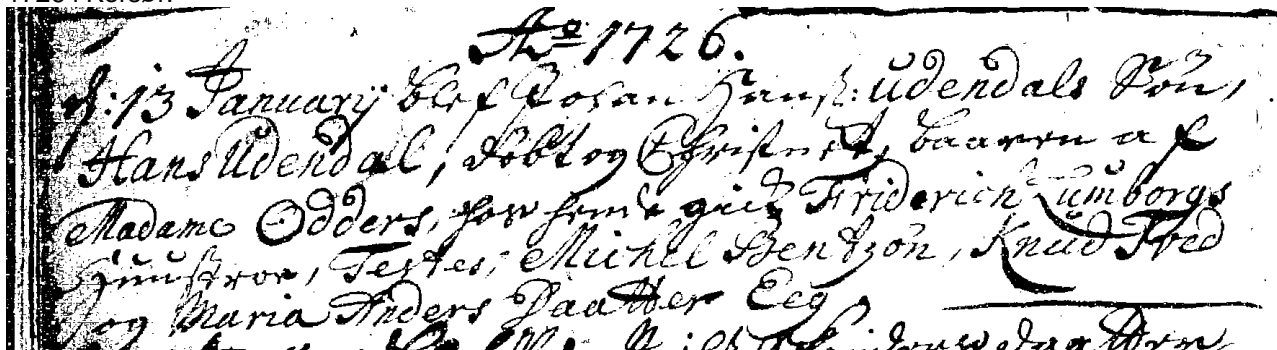 Aº 1726.
d: 13 Januarij blef Johan Hanß: Udendals Søn,
Hans Udendall, døbt og Christnet, baaren af
Madame Odders, hos hende gick Friderich Lumborgs
Huustroe, Testes, Michel Bentzon, Knud Fred
og Maria Anders Daatter Eeg,